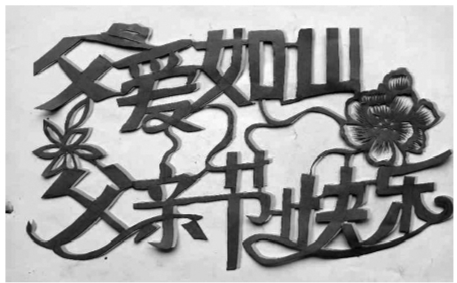 父爱如山
父亲节快乐